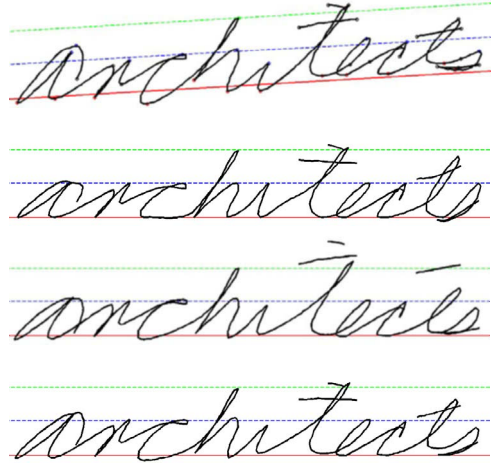 architects
architects
architects
architects